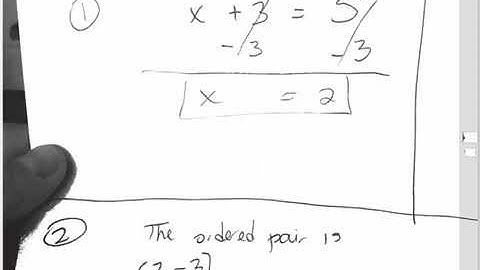 ① x + 3 = 5
-3 -3
x = 2
② The ordered pair is
(2, -3]